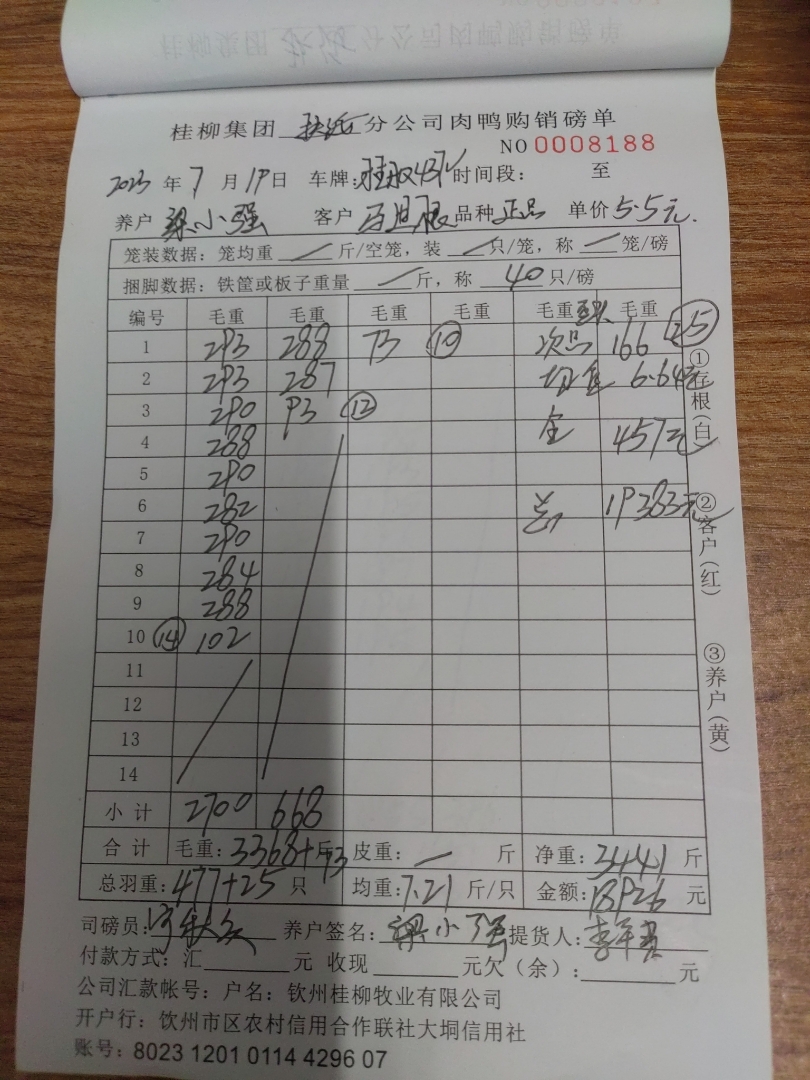 桂柳集团 分公司肉鸭购销磅单
NO 0008188
2023 年 7 月 19 日 车牌: 时间段: 至
养户 梁小强 客户 品种 正品 单价 5.5元.
笼装数据: 笼均重 / 斤/空笼, 装 / 只/笼, 称 / 笼/磅
捆脚数据: 铁筐或板子重量 / 斤, 称 40 只/磅
编号 毛重 毛重 毛重 毛重 毛重 毛重
1 293 288 73 ⑩ 次品 166
2 293 287 均重 6.64
3 290 93 ⑫ 金 457元
4 288
5 290
6 282 总 19383元
7 290
8 284
9 288
10 ⑭ 102
11
12
13
14
小计 2700 668
合计 毛重: 3368+73 斤 皮重: — 斤 净重: 3441 斤
总羽重: 477+25 只 均重: 7.21 斤/只 金额: 18926 元
司磅员: 养户签名: 梁小强 提货人:
付款方式: 汇 元 收现 元欠(余): 元
公司汇款帐号: 户名: 钦州桂柳牧业有限公司
开户行: 钦州市区农村信用合作联社大垌信用社
账号: 8023 1201 0114 4296 07
①存根(白)
②客户(红)
③养户(黄)